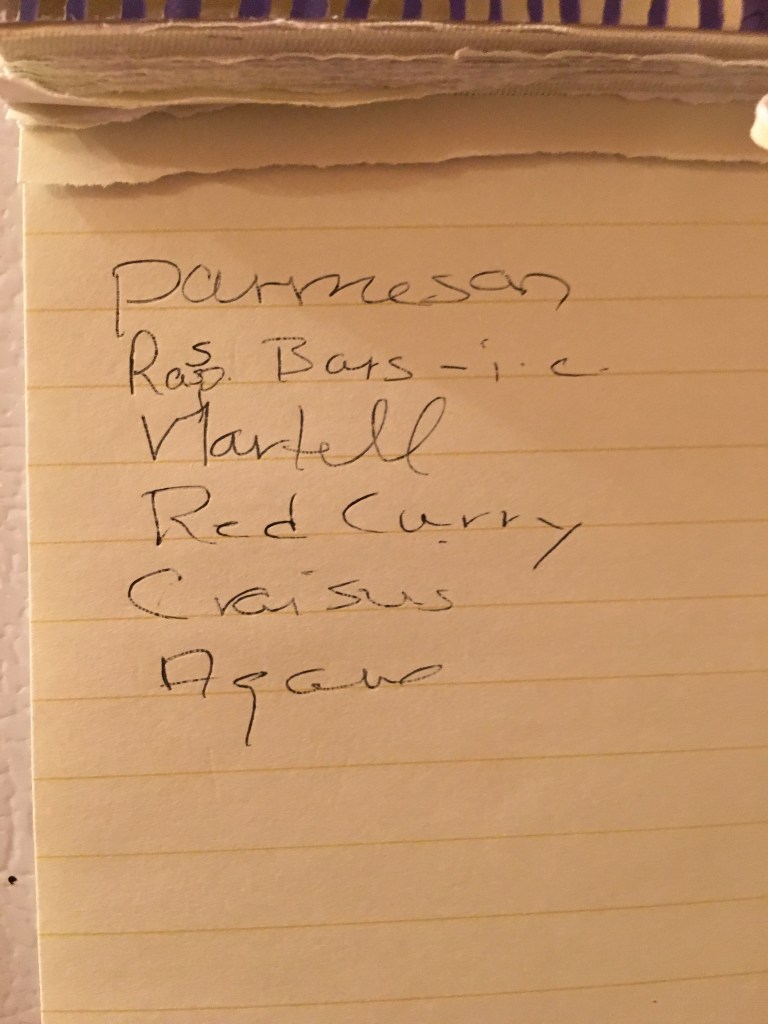 Parmesan
Rasp. Bars - i.c.
Martell
Red Curry
Craisins
Agave